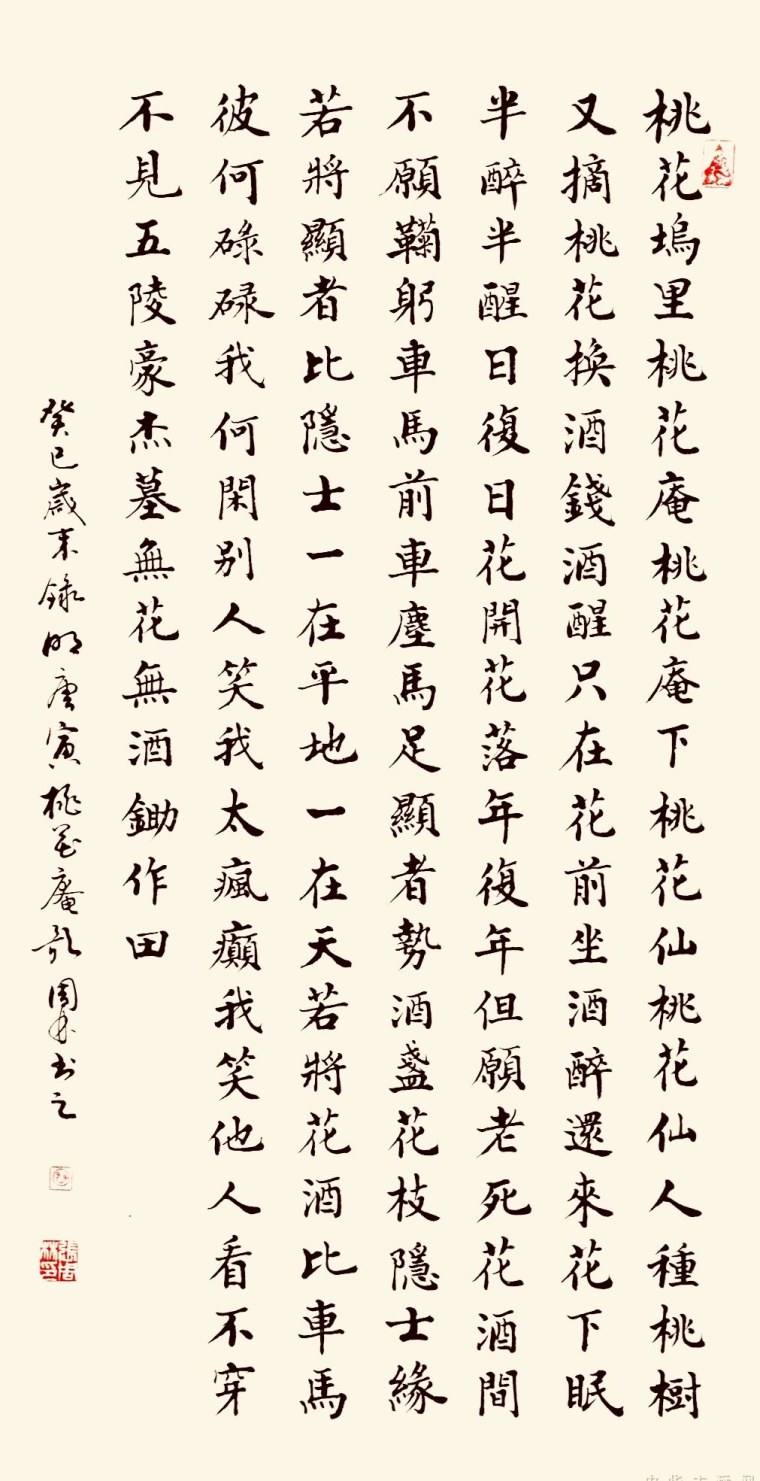 桃花塢里桃花庵桃花庵下桃花仙桃花仙人種桃樹
又摘桃花換酒錢酒醒只在花前坐酒醉還來花下眠
半醉半醒日復日花開花落年復年但願老死花酒間
不願鞠躬車馬前車塵馬足顯者勢酒盞花枝隱士緣
若將顯者比隱士一在平地一在天若將花酒比車馬
彼何碌碌我何閑別人笑我太瘋癲我笑他人看不穿
不見五陵豪杰墓無花無酒鋤作田
癸巳歲末錄明唐寅桃花庵歌周林書之